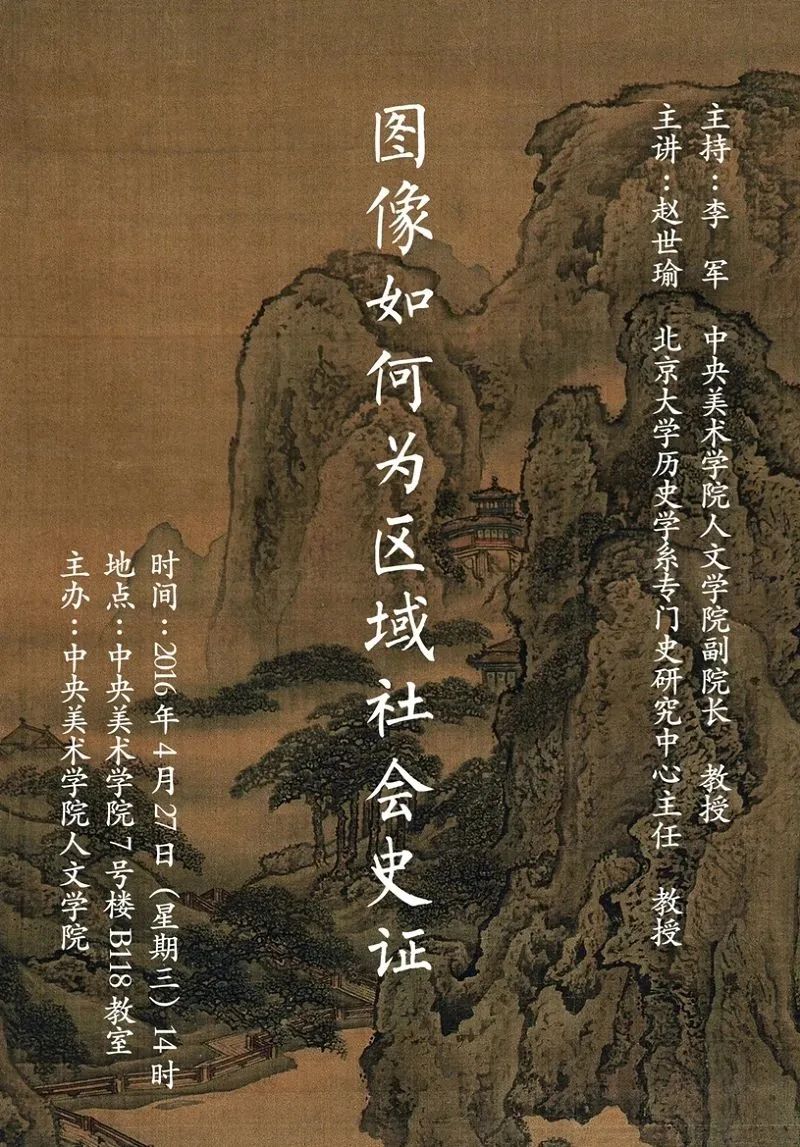 主持：李 军 中央美术学院人文学院副院长 教授
主讲：赵世瑜 北京大学历史学系专门史研究中心主任 教授
图像如何为区域社会史证
时间：2016年4月27日（星期三）14时
地点：中央美术学院7号楼B118教室
主办：中央美术学院人文学院